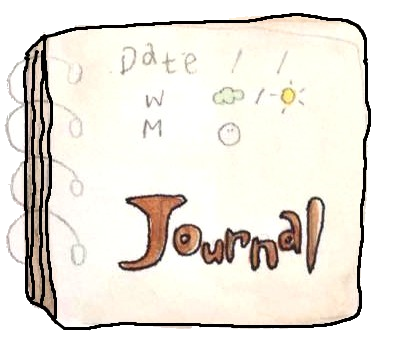 Date / /
W /
M
Journal